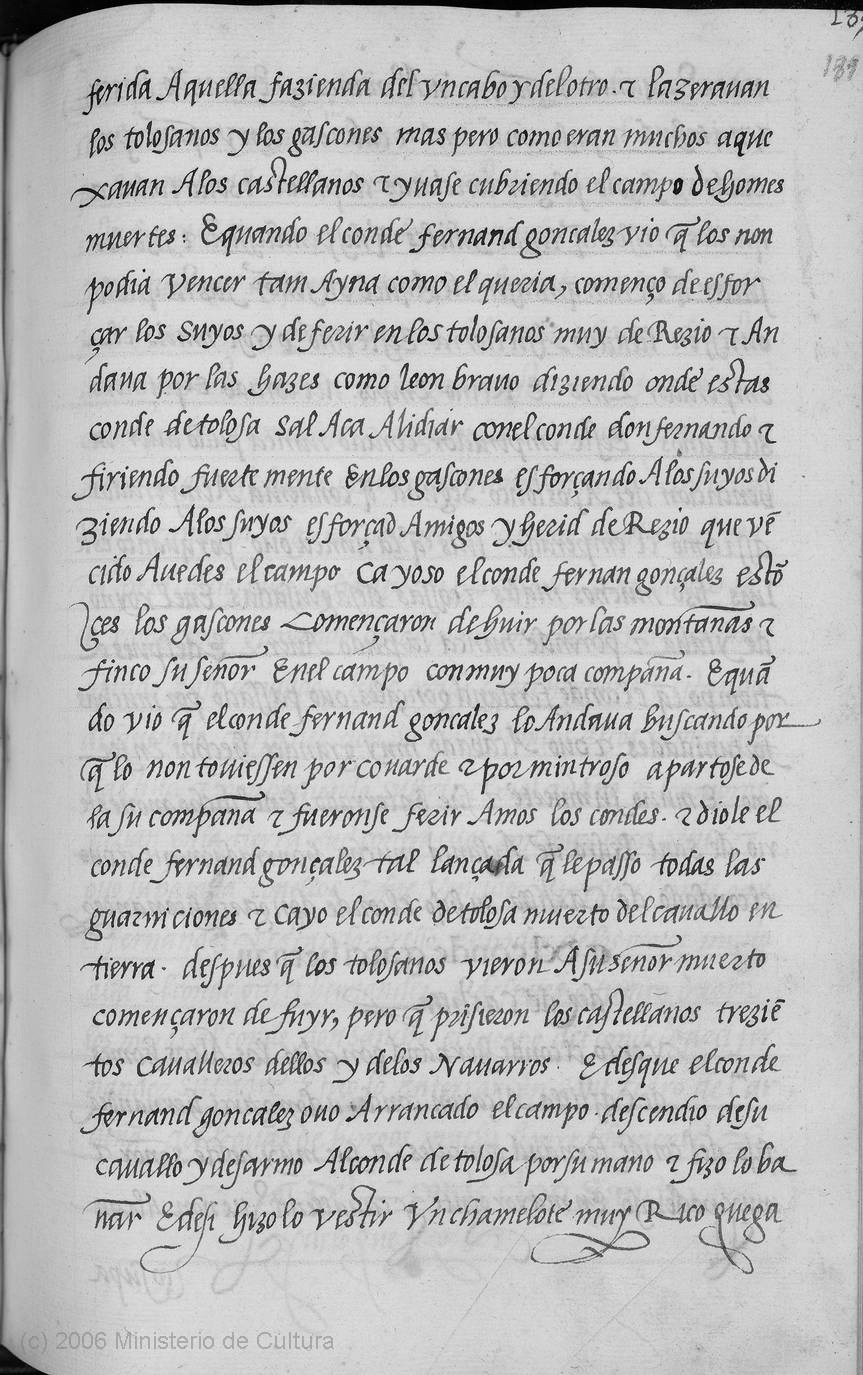 189
ferida Aquella fazienda del vn cabo y del otro. τ lazerauan
los tolosanos y los gascones mas pero como eran muchos aque
xauan Alos castellanos τ yuase cubriendo el campo de homes
muertes: Equando el conde fernand goncalez vio q̃ los non
podia vencer tam Ayna como el queria, començo de esfor
çar los suyos y de ferir en los tolosanos muy de Rezio τ An
daua por las hazes como leon brauo diziendo onde estas
conde de tolosa sal Aca A lidiar con el conde don fernando τ
firiendo fuerte mente En los gascones esforçando A los suyos di
ziendo Alos suyos esforçad Amigos y herid de Rezio que vẽ
cido Auedes el campo Ca yo so el conde fernan gonçalez estõ
çes los gascones Començaron de huir por las montañas τ
finco su señor En el campo con muy poca compaña. E quã
do vio q̃ el conde fernand goncalez lo Andaua buscando por
q̃ lo non touiessen por couarde τ por mintroso apartose de
la su compaña τ fueronse ferir Amos los condes. τ diole el
conde fernand gonçalez tal lançada q̃ le passo todas las
guarniciones τ cayo el conde de tolosa muerto del cauallo en
tierra. despues q̃ los tolosanos vieron A su señor muerto
començaron de fuyr, pero q̃ prisieron los castellanos treziẽ
tos caualleros dellos y de los Nauarros. E desque el conde
fernand goncalez ouo Arrancado el campo. descendio de su
cauallo y desarmo Al conde de tolosa por su mano τ fizo lo ba
ñar E desi hizo lo vestir Vn chamelote muy Rico que ga
(c) 2006 Ministerio de Cultura